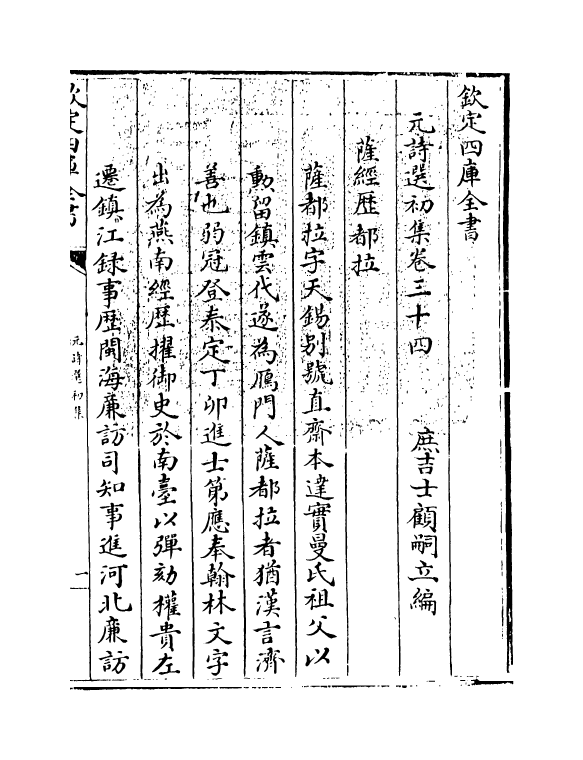 欽定四庫全書
元詩選初集卷三十四　庶吉士顧嗣立編
薩經歴都拉
薩都拉字天錫别號直齋本達實曼氏祖父以
勲留鎮雲代遂為鴈門人薩都拉者猶漢言濟
善也弱冠登泰定丁卯進士第應奉翰林文字
出為燕南經歴擢御史於南臺以彈劾權貴左
遷鎮江録事歴閩海廉訪司知事進河北廉訪
欽定四庫全書
元詩選初集
一